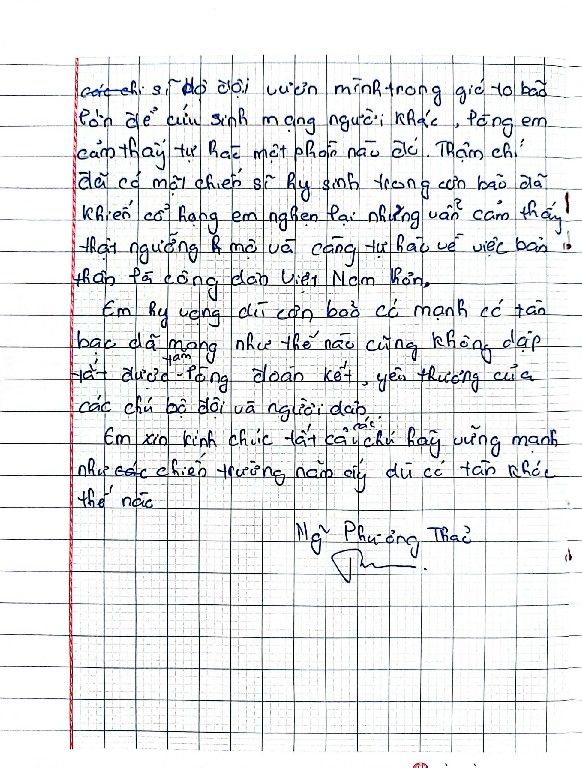 các chi sĩ bộ đội vươn mình trong gió to bão
lớn để cứu sinh mạng người khác, lòng em
cảm thấy tự hào một phần nào đó. Thậm chí
đã có một chiến sĩ hy sinh trong cơn bão đã
khiến cổ họng em nghẹn lại nhưng vẫn cảm thấy
thật ngưỡng mộ và càng tự hào về việc bản
thân là công dân Việt Nam hơn.
Em hy vọng dù cơn bão có mạnh có tàn
bạc dã mạng như thế nào cũng không dập
tắt được tấm lòng đoàn kết, yêu thương của
các chú bộ đội và người dân.
Em xin kính chúc tất cả các chú hãy vững mạnh
như các chiến trường năm ấy dù có tàn khốc
thế nào
Ng~ Phương Thảo